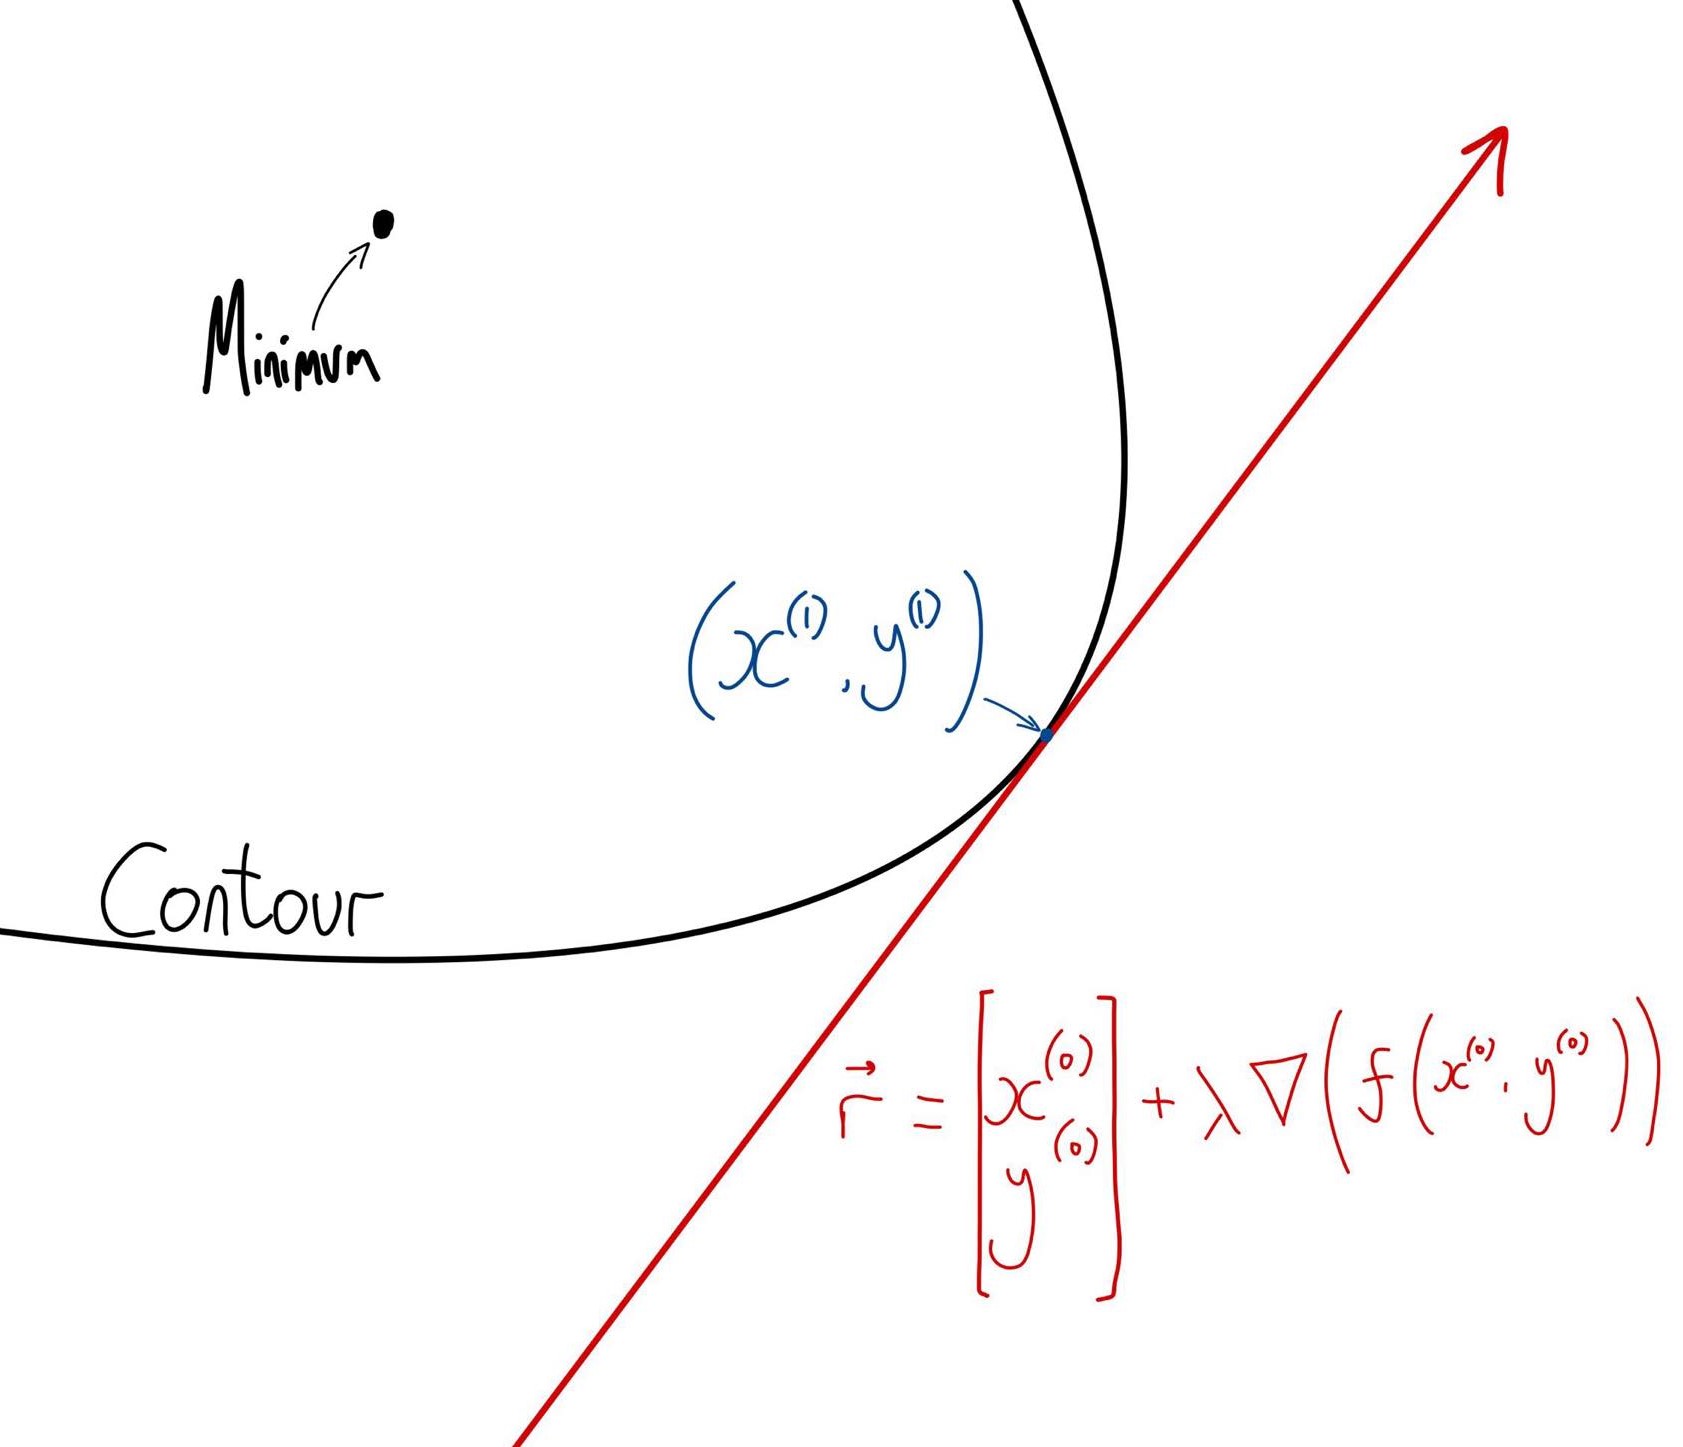 Minimum
(x⁽¹⁾, y⁽¹⁾)
Contour
r⃗ = [x⁽⁰⁾ y⁽⁰⁾] + λ∇(f(x⁽⁰⁾, y⁽⁰⁾))